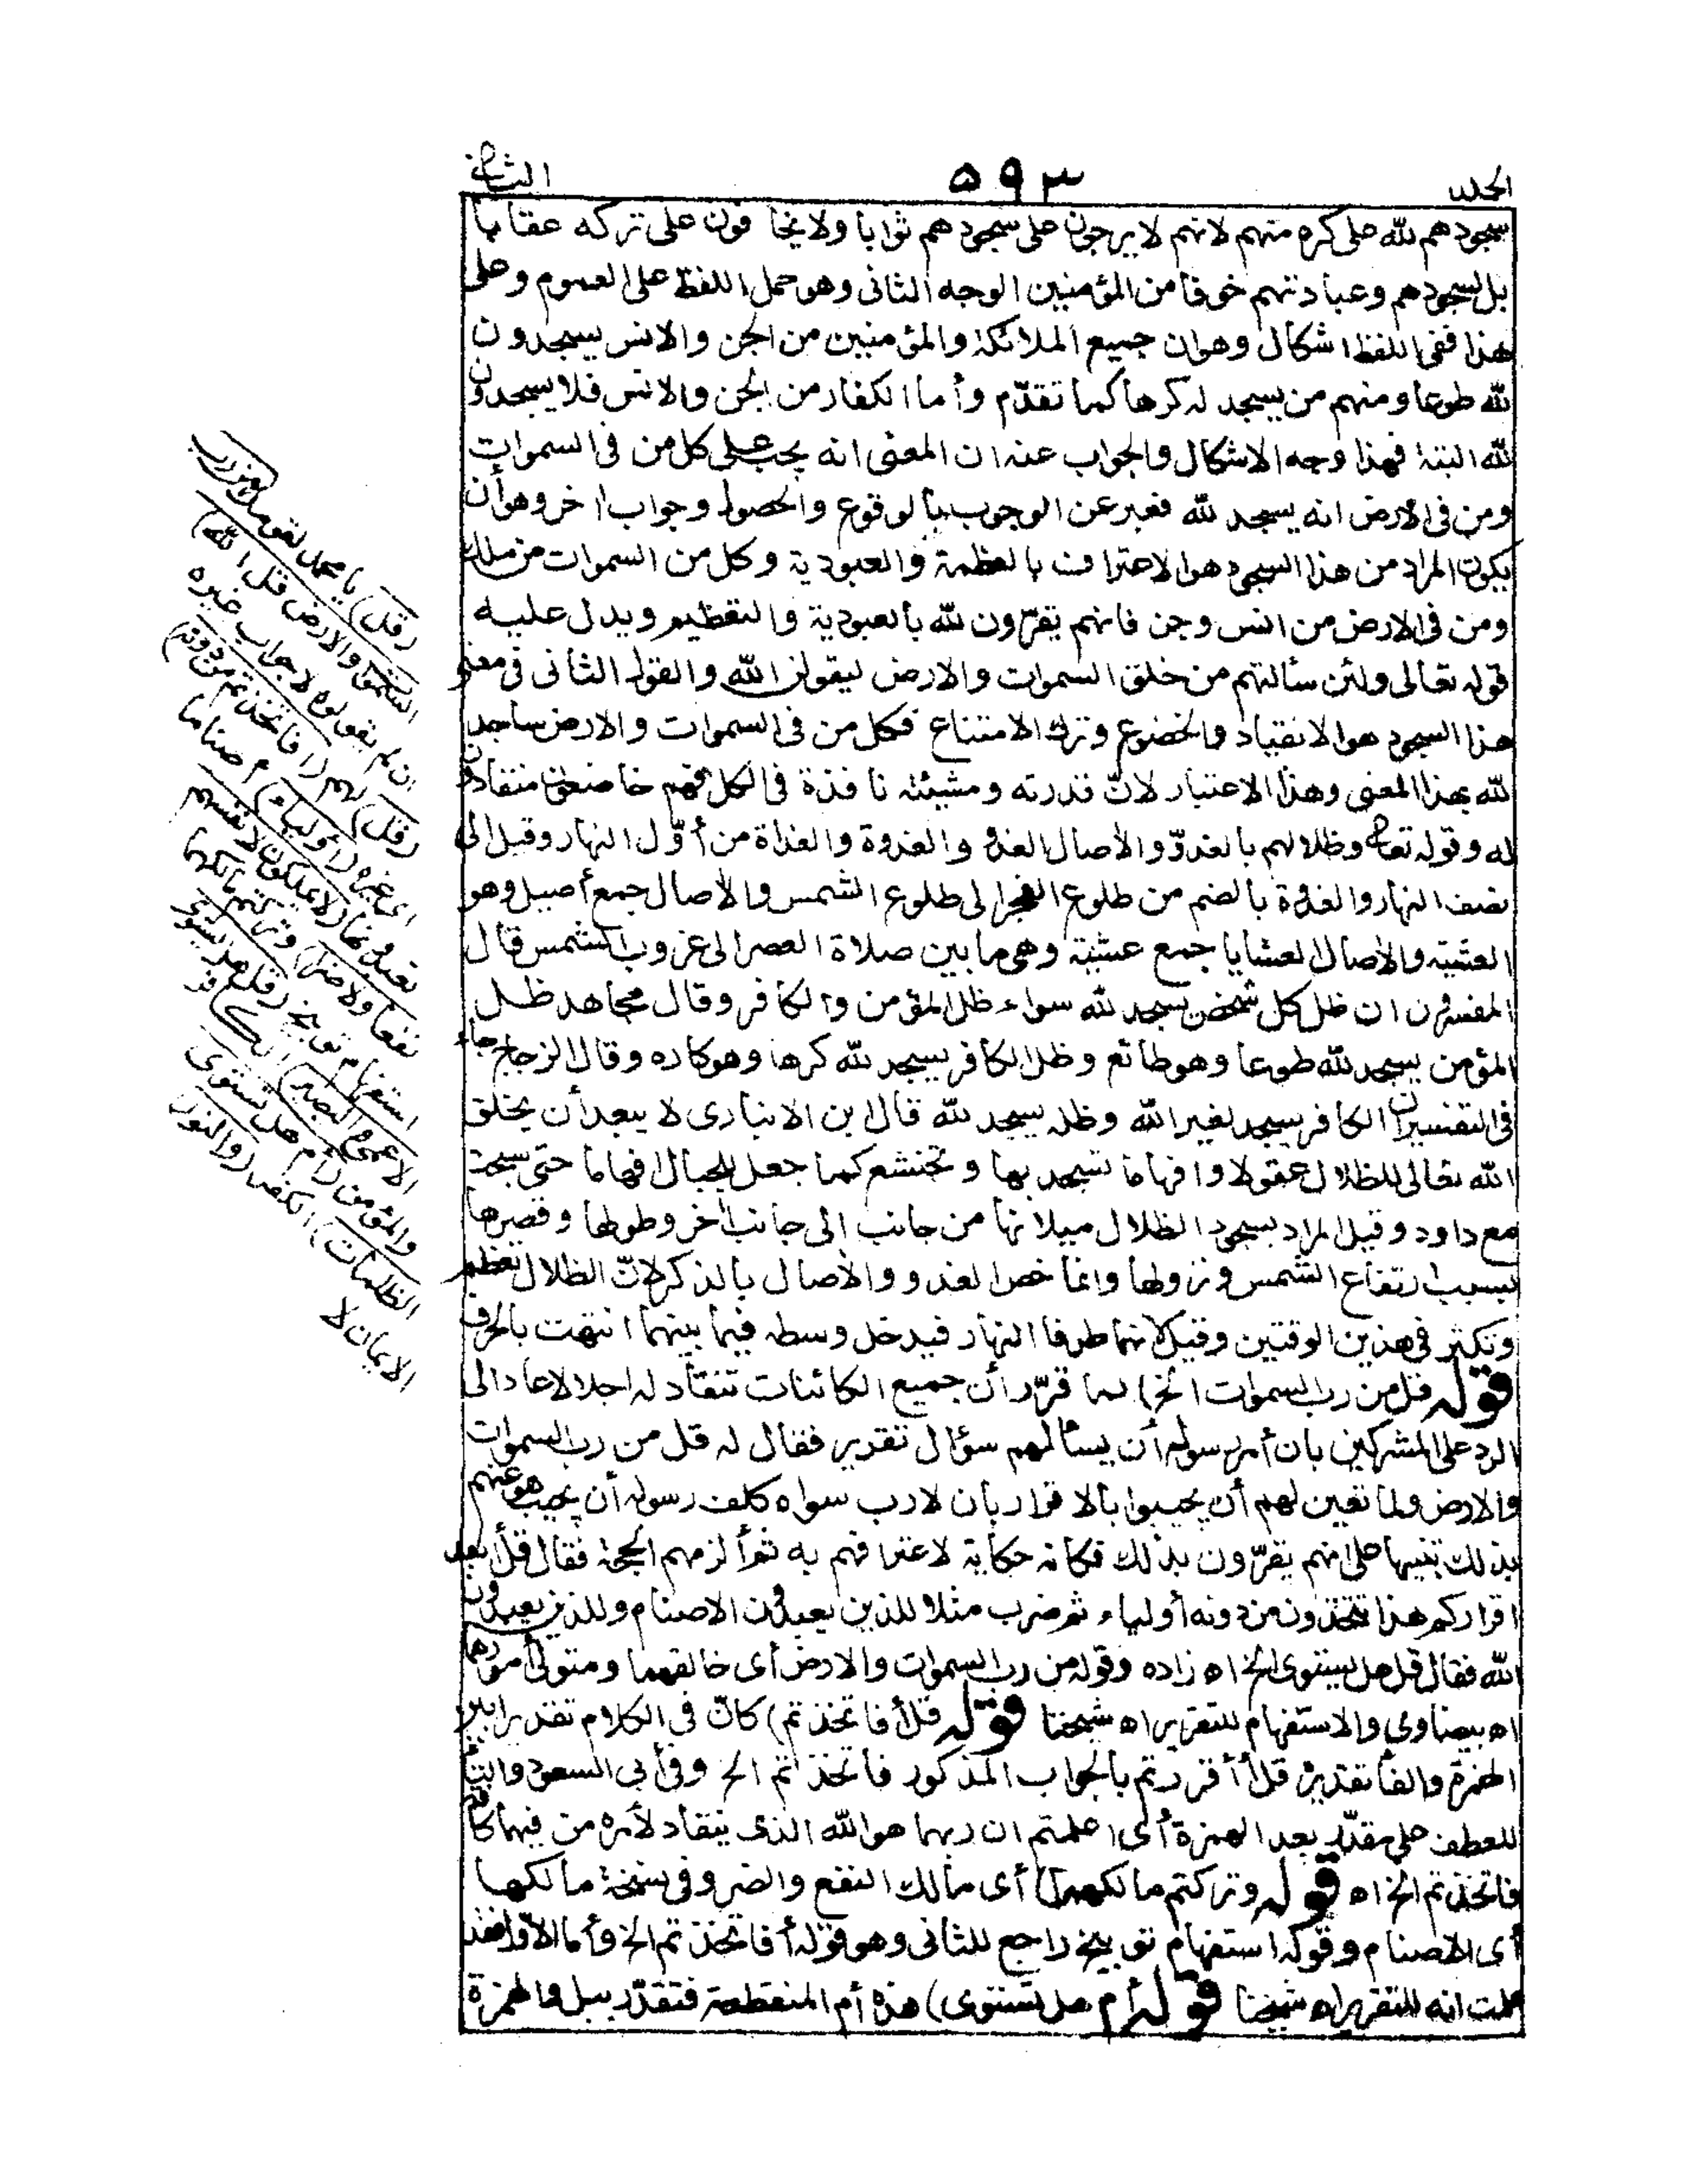 الجلد ٥٩٣ الثانى
سجودهم لله على كره منهم لانهم لا يرجون على سجودهم ثوابا ولا يخافون على تركه عقابا
بل سجودهم وعبادتهم خوفا من المؤمنين الوجه الثانى وهو حمل اللفظ على العموم وعلى
هذا ففى اللفظ اشكال وهو ان جميع الملائكة والمؤمنين من الجن والانس يسجدون
لله طوعا ومنهم من يسجد له كرها كما تقدّم وأما الكفار من الجن والانس فلا يسجدون
لله البتة فهذا وجه الاشكال والجواب عنه ان المعنى انه يجب على كل من فى السموات
ومن فى الارض انه يسجد لله فعبر عن الوجوب بالوقوع والحصول وجواب اخر وهو أن
يكون المراد من هذا السجود هو الاعتراف بالعظمة والعبودية وكل من السموات من ملك
ومن فى الارض من انس وجن فانهم يقرّون لله بالعبودية والتعظيم ويدل عليه
قوله تعالى ولئن سألتهم من خلق السموات والارض ليقولن الله والقول الثانى فى معنى
هذا السجود هو الانقياد والخضوع وترك الامتناع فكل من فى السموات والارض ساجد
لله بهذا المعنى وهذا الاعتبار لانّ قدرته ومشيئته نافذة فى الكل فهم خاضعون منقادون
له وقوله تعالى وظلالهم بالغدوّ والأصال الغدو والغدوة والغداة من أوّل النهار وقيل الى
نصف النهار والغدوة بالضم من طلوع الفجر الى طلوع الشمس والأصال جمع أصيل وهو
العشية والأصال العشايا جمع عشية وهى ما بين صلاة العصر الى غروب الشمس قال
المفسرون ان ظل كل شخص يسجد لله سواء ظل المؤمن والكافر وقال مجاهد ظل
المؤمن يسجد لله طوعا وهو طائع وظل الكافر يسجد لله كرها وهو كاره وقال الزجاج جاء
فى التفسير ان الكافر يسجد لغير الله وظله يسجد لله قال ابن الانبارى لا يبعد أن يخلق
الله تعالى للظلال عقولا وافهاما تسجد بها وتخشع كما جعل للجبال افهاما حتى سبحت
مع داود وقيل المراد بسجود الظلال ميلانها من جانب الى جانب أخر وطولها وقصرها
بسبب ارتفاع الشمس ونزولها وانما خص الغدو والأصال بالذكر لانّ الظلال تعظم
وتكثر فى هذين الوقتين وقيل لانهما طرفا النهار فيدخل وسطه فيما بينهما انتهت بالحرف
قوله قل من رب السموات الخ) لما قرّر أن جميع الكائنات تنقاد له اجلالا عاد الى
الرد على المشركين بان أمر رسوله أن يسألهم سؤال تقرير فقال له قل من رب السموات
والارض ولما تعين لهم أن يجيبوا بالاقرار بان لا رب سواه كلف رسوله أن يجيب هو عنهم
بذلك تنبيها على انهم يقرّون بذلك فكانه حكاية لاعترافهم به ثم ألزمهم الحجة فقال قل أبعد
اقراركم هذا تتخذون من دونه أولياء ثم ضرب مثلا للذين يعبدون الاصنام وللذين يعبدون
الله فقال قل هل يستوى الخ اه زاده وقوله من رب السموات والارض أى خالقهما ومتولى أمورهما
اه بيضاوى والاستفهام للتقرير اه شيخنا قوله قل أفاتخذتم) كانّ فى الكلام تقديرا بين
الهمزة والفا تقديره قل أأقررتم بالجواب المذكور فاتخذتم الخ وفى أبى السعود والفاء
للعطف على مقدّر بعد الهمزة أى اعلمتم ان ربهما هو الله الذى ينقاد لأمره من فيهما كافة
فاتخذتم الخ اه قوله وتركتم مالكهما) أى مالك النفع والضر وفى نسخة مالكها
أى الاصنام وقوله استفهام توبيخ راجع للثانى وهو قوله أفاتخذتم الخ وأما الاوّل فقد
علمت انه للتقرير اه شيخنا قوله أم هل تستوى) هذه أم المنقطعة فتقدّر ببل والهمزة
(قل) يا محمد لقومك (من رب
السموات والارض قل الله)
ان لم يقولوه لا جواب غيره
(قل) لهم (أفاتخذتم من دونه)
اى غيره (أولياء) أصناما
تعبدونها (لا يملكون لانفسهم
نفعا ولا ضرا) وتركتم مالكها
استفهام توبيخ (قل هل يستوى
الاعمى والبصير) الكافر
والمؤمن (أم هل تستوى
الظلمات) الكفر (والنور)
الايمان لا